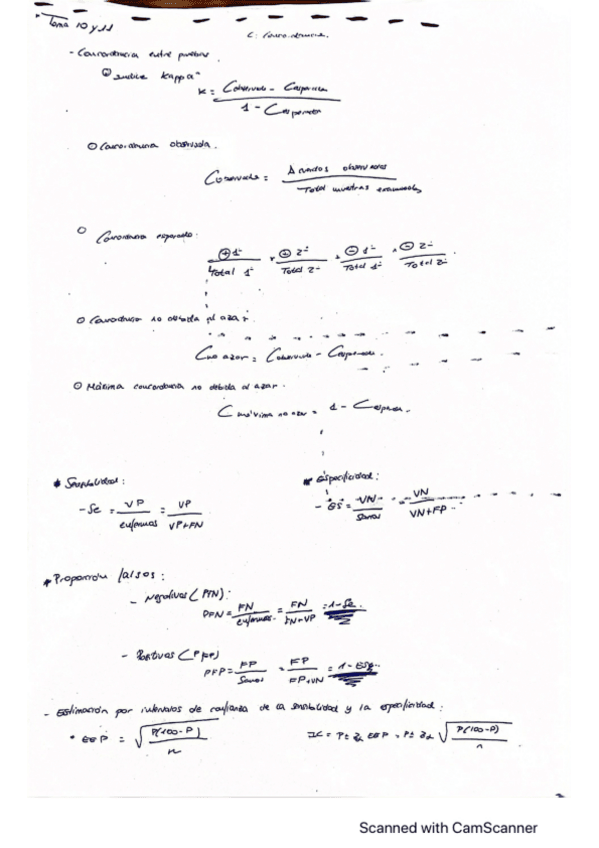 Tema 10 y 11
C: Concordancia.
- Concordancia entre pruebas.
"Índice Kappa"
K = (Cobservada - Cesperada) / (1 - Cesperada)
Concordancia observada.
Cobservada = Acuerdos observados / Total muestras examinadas
Concordancia esperada:
⊕ 1ª / Total 1ª × ⊕ 2ª / Total 2ª + ⊖ 1ª / Total 1ª × ⊖ 2ª / Total 2ª
Concordancia no debida al azar.
Cno azar = Cobservada - Cesperada
Máxima concordancia no debida al azar.
Cmáxima no azar = 1 - Cesperada
* Sensibilidad:
- Se = VP / enfermos = VP / VP+FN
* Especificidad:
- Es = VN / Sanos = VN / VN+FP
* Proporción falsos:
- Negativos (PFN):
PFN = FN / enfermos = FN / FN+VP = 1-Se
- Positivos (PFP)
PFP = FP / Sanos = FP / FP+VN = 1-Esp
- Estimación por intervalos de confianza de la sensibilidad y la especificidad:
* EEP = √(P(100-P) / n)
IC = P ± Zα EEP = P ± Zα √(P(100-P) / n)
Scanned with CamScanner